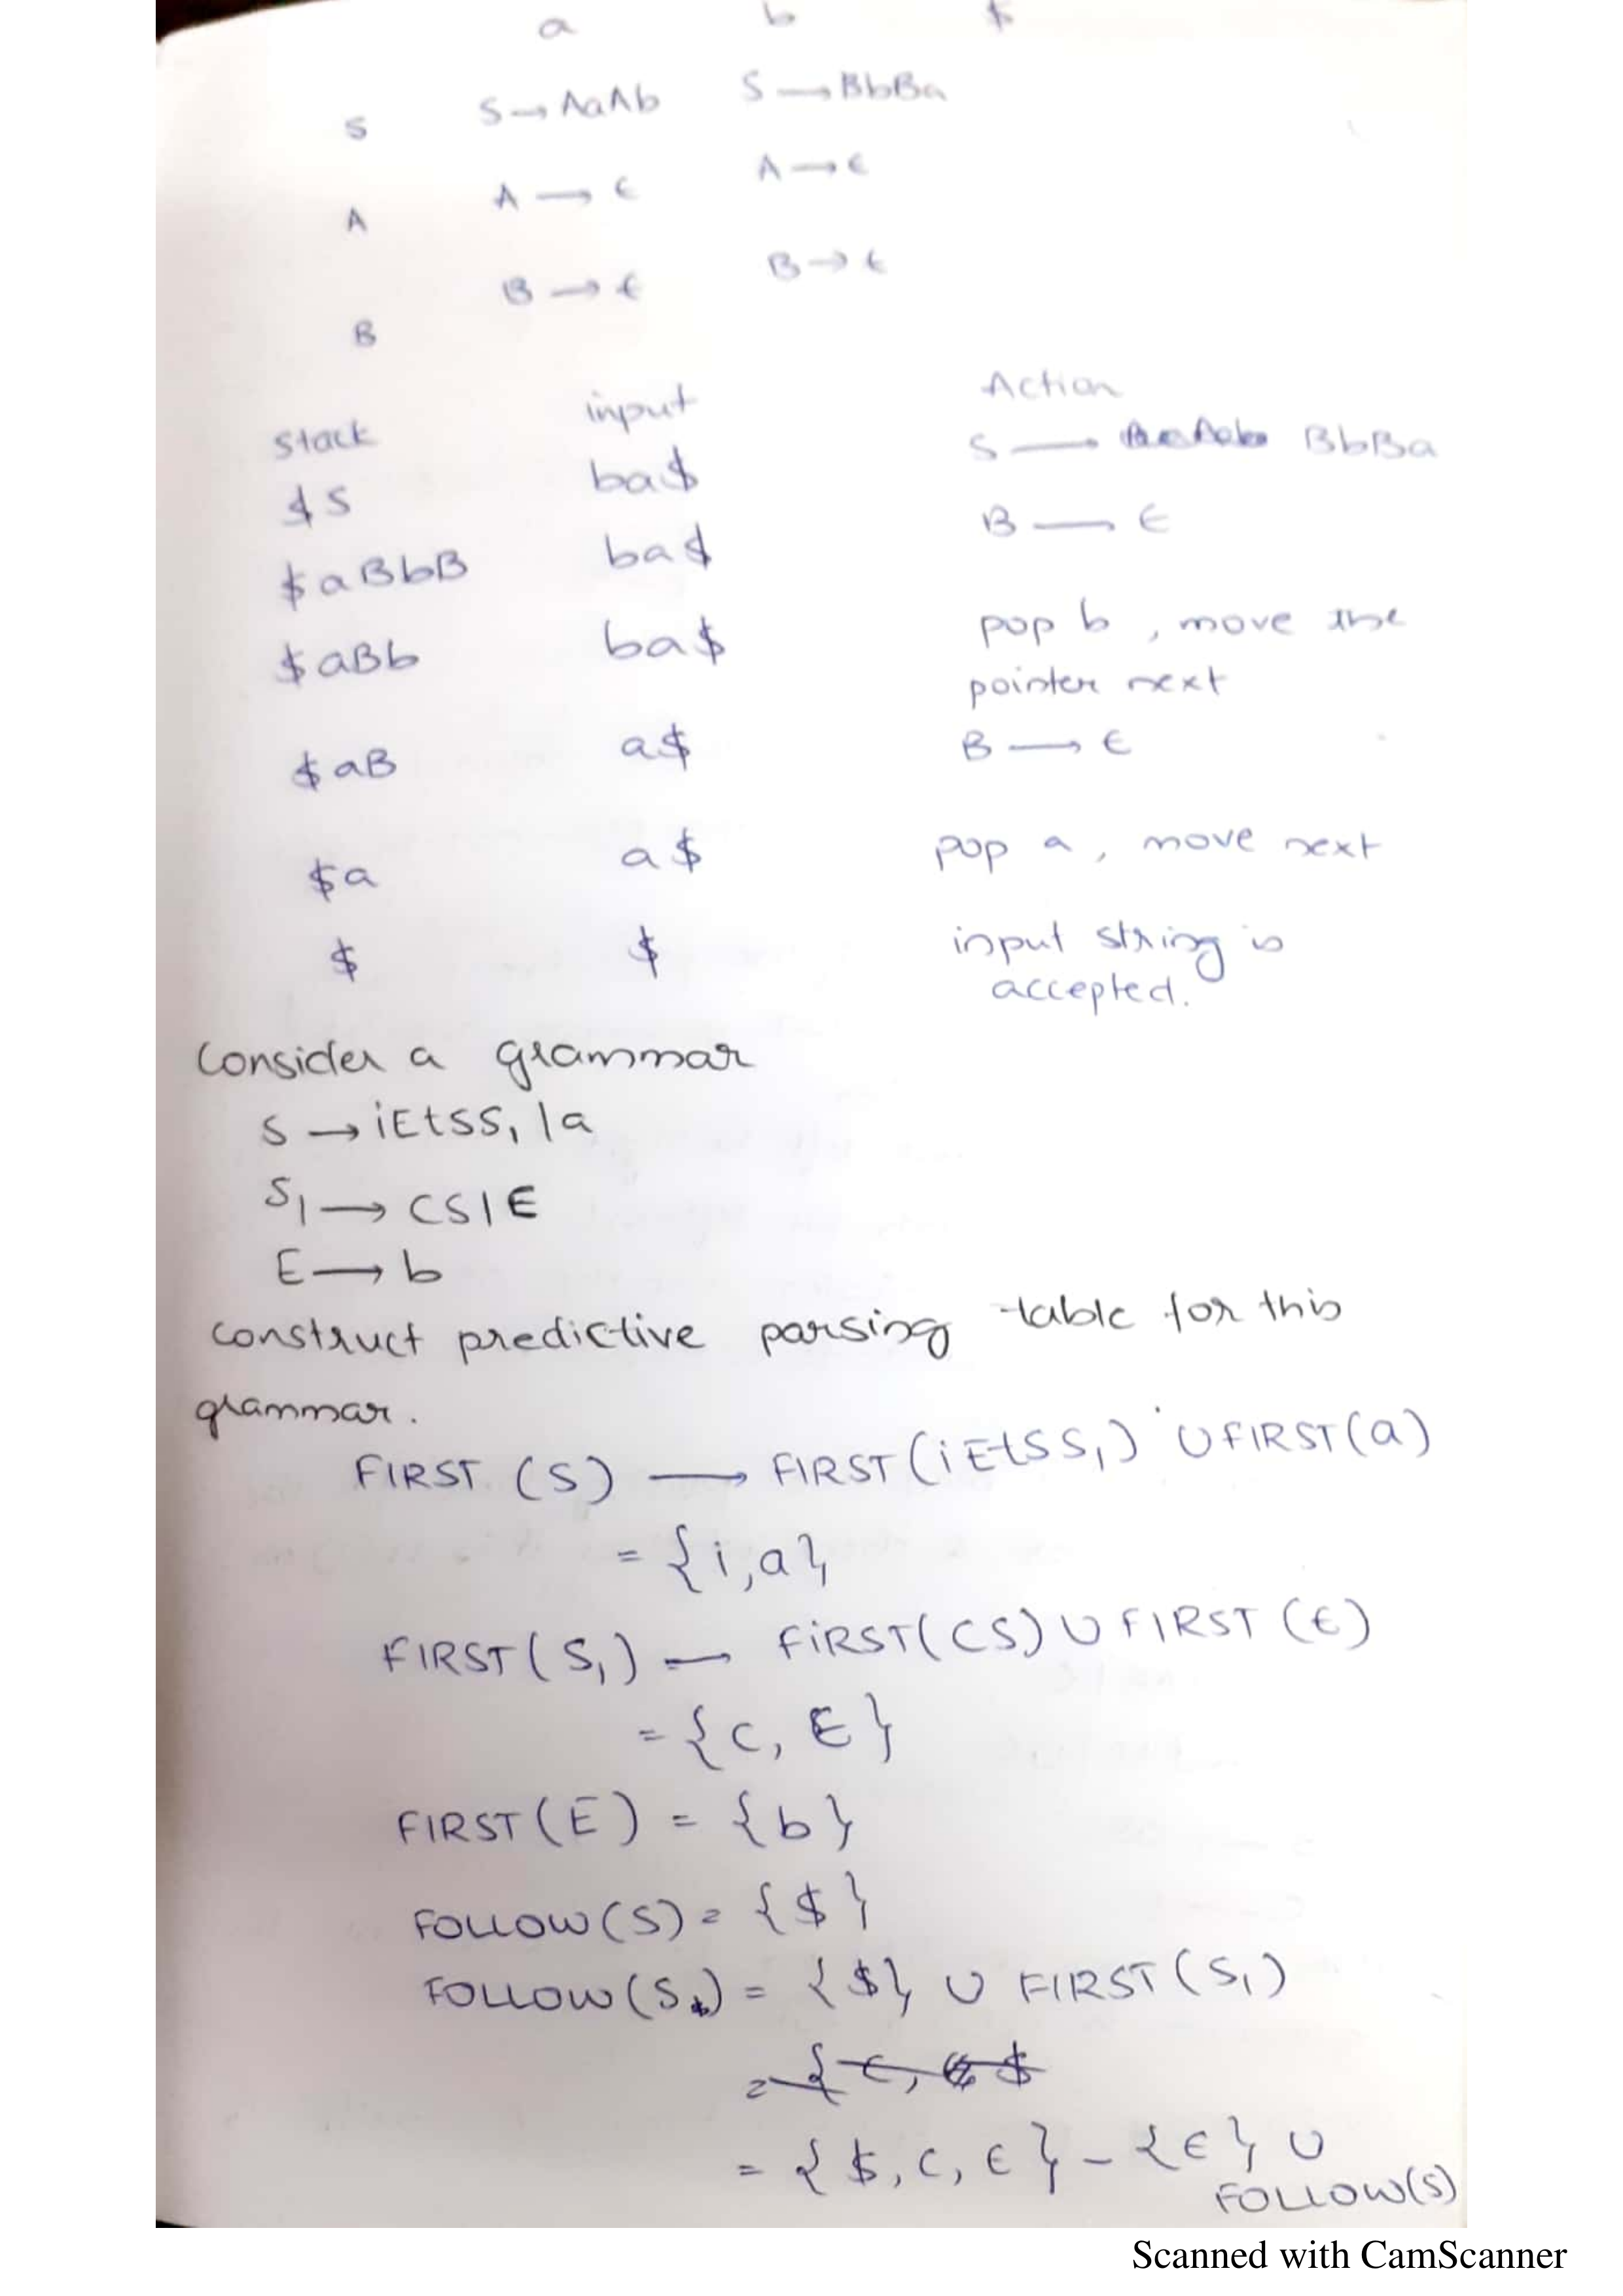 a b $
S S → AaAb S → BbBa
A A → ε A → ε
B B → ε B → ε
Stack input Action
$S ba$ S → BbBa
$aBbB ba$ B → ε
$aBb ba$ pop b, move the
pointer next
$aB a$ B → ε
$a a$ pop a, move next
$ $ input string is
accepted.
Consider a grammar
S → iEtSS₁ | a
S₁ → CS | ε
E → b
construct predictive parsing table for this
grammar.
FIRST (S) → FIRST (iEtSS₁) ∪ FIRST (a)
= {i, a}
FIRST (S₁) — FIRST (CS) ∪ FIRST (ε)
= {C, ε}
FIRST (E) = {b}
FOLLOW (S) = {$}
FOLLOW (S) = {$} ∪ FIRST (S₁)
= {$, C, ε} - {ε} ∪
FOLLOW(S)
Scanned with CamScanner